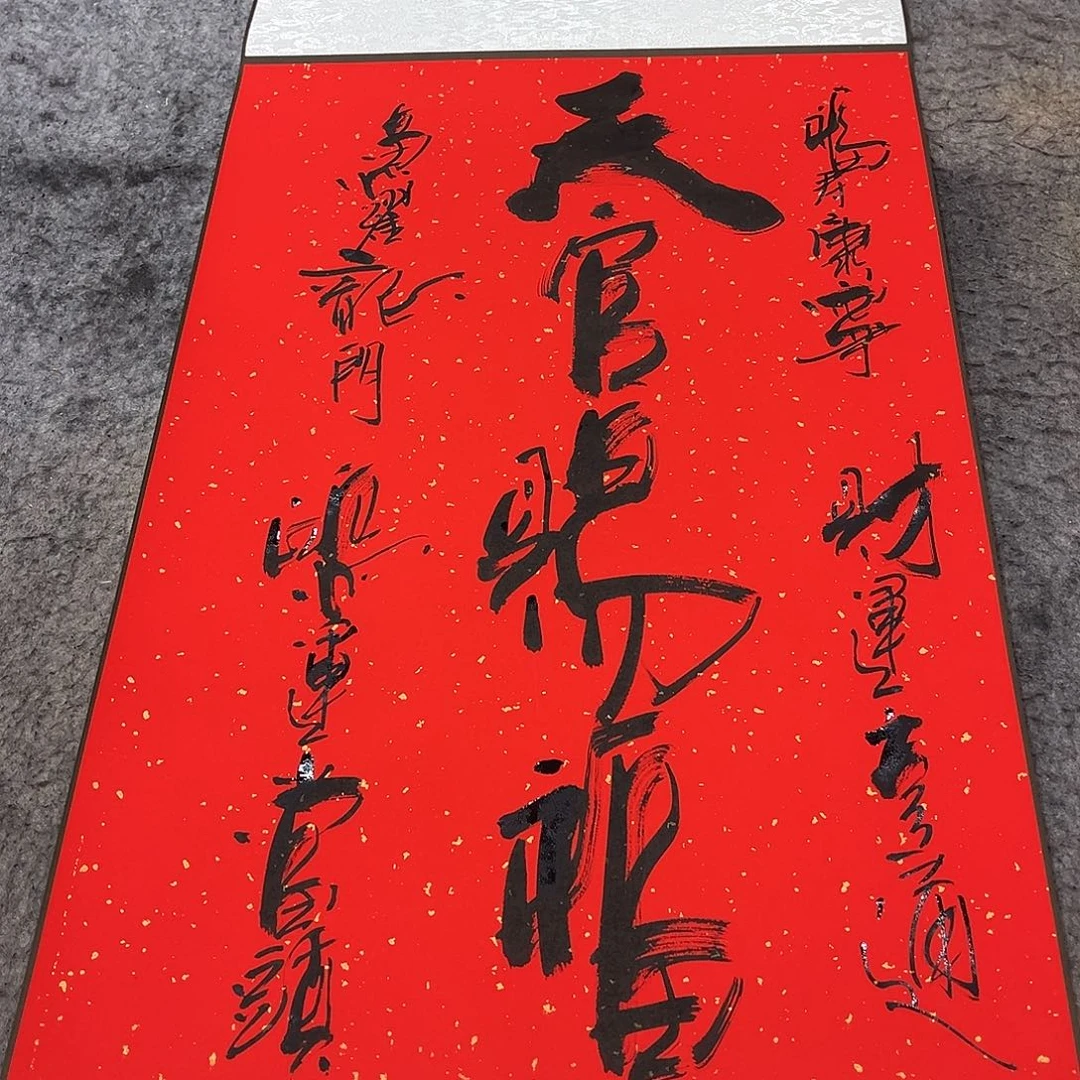 福寿康寧 財運亨通
天官賜福
魚躍龍門 鴻運當頭